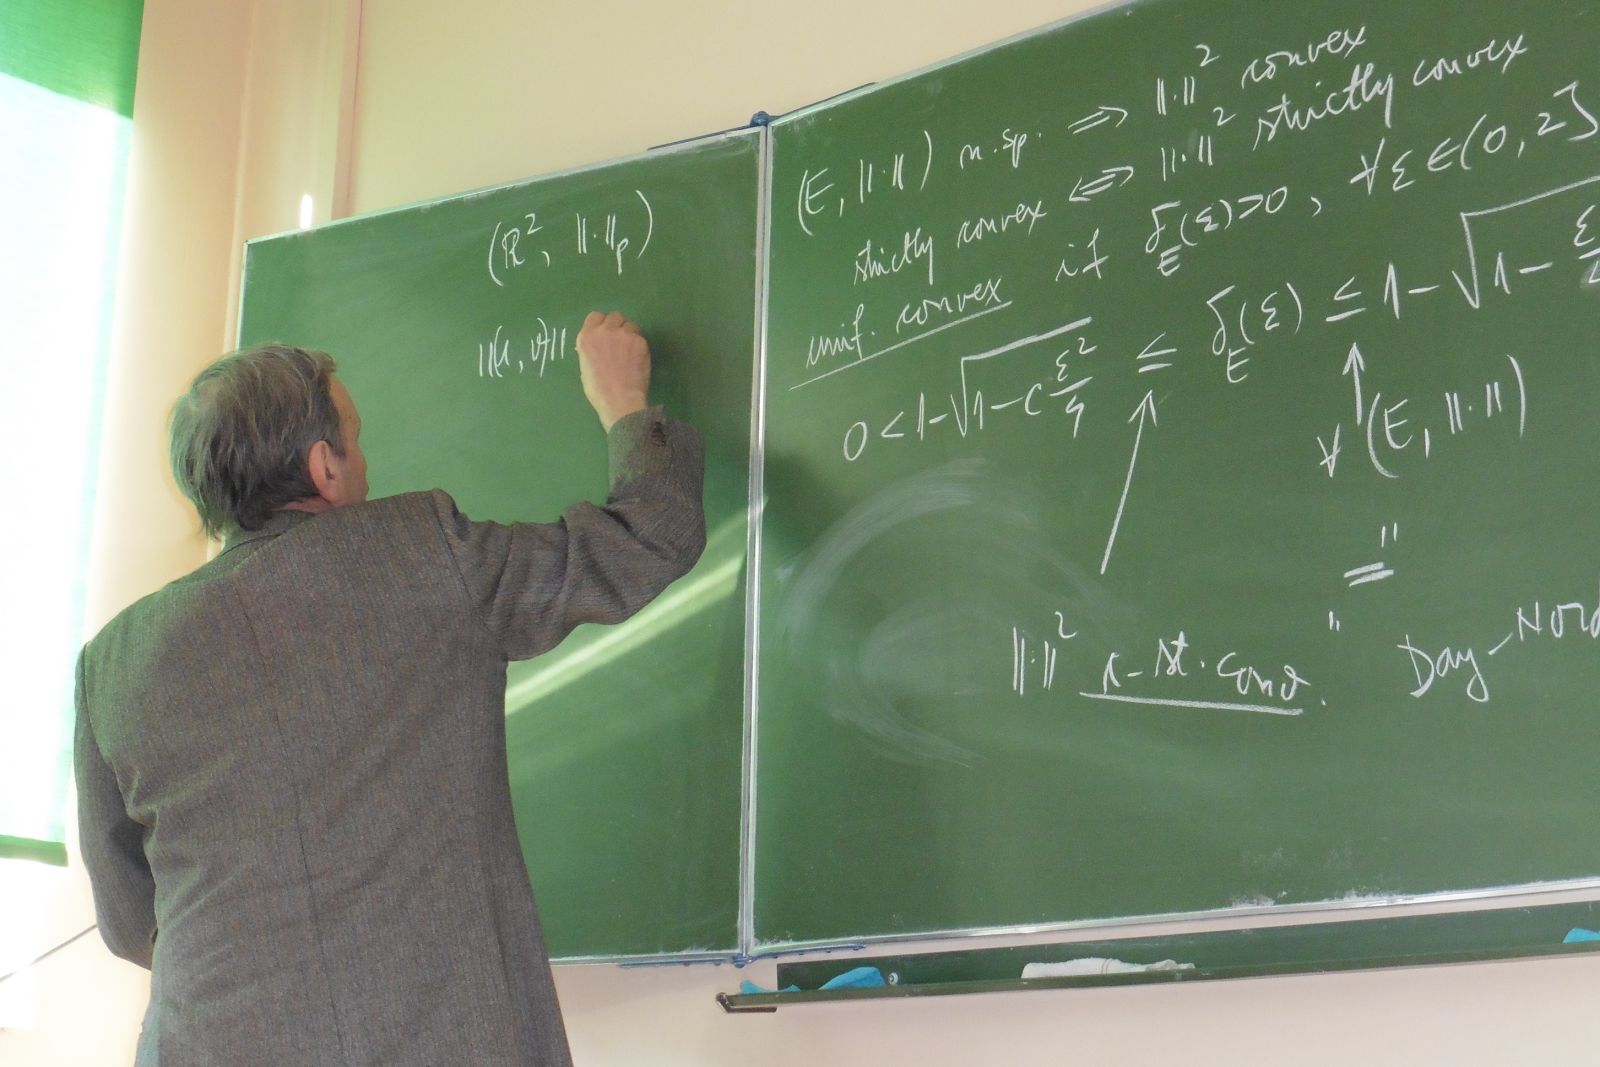 (ℝ², ‖·‖ₚ)
‖(u, v)‖
(E, ‖·‖) n.sp. ⇒ ‖·‖² convex
strictly convex ⇔ ‖·‖² strictly convex
unif. convex if δ_E(ε)>0, ∀ε∈(0,2]
0 < 1-√(1-c ε²/4) ≤ δ_E(ε) ≤ 1-√(1- ε
∀ (E, ‖·‖)
"="
‖·‖² st. conv. Day-Nord